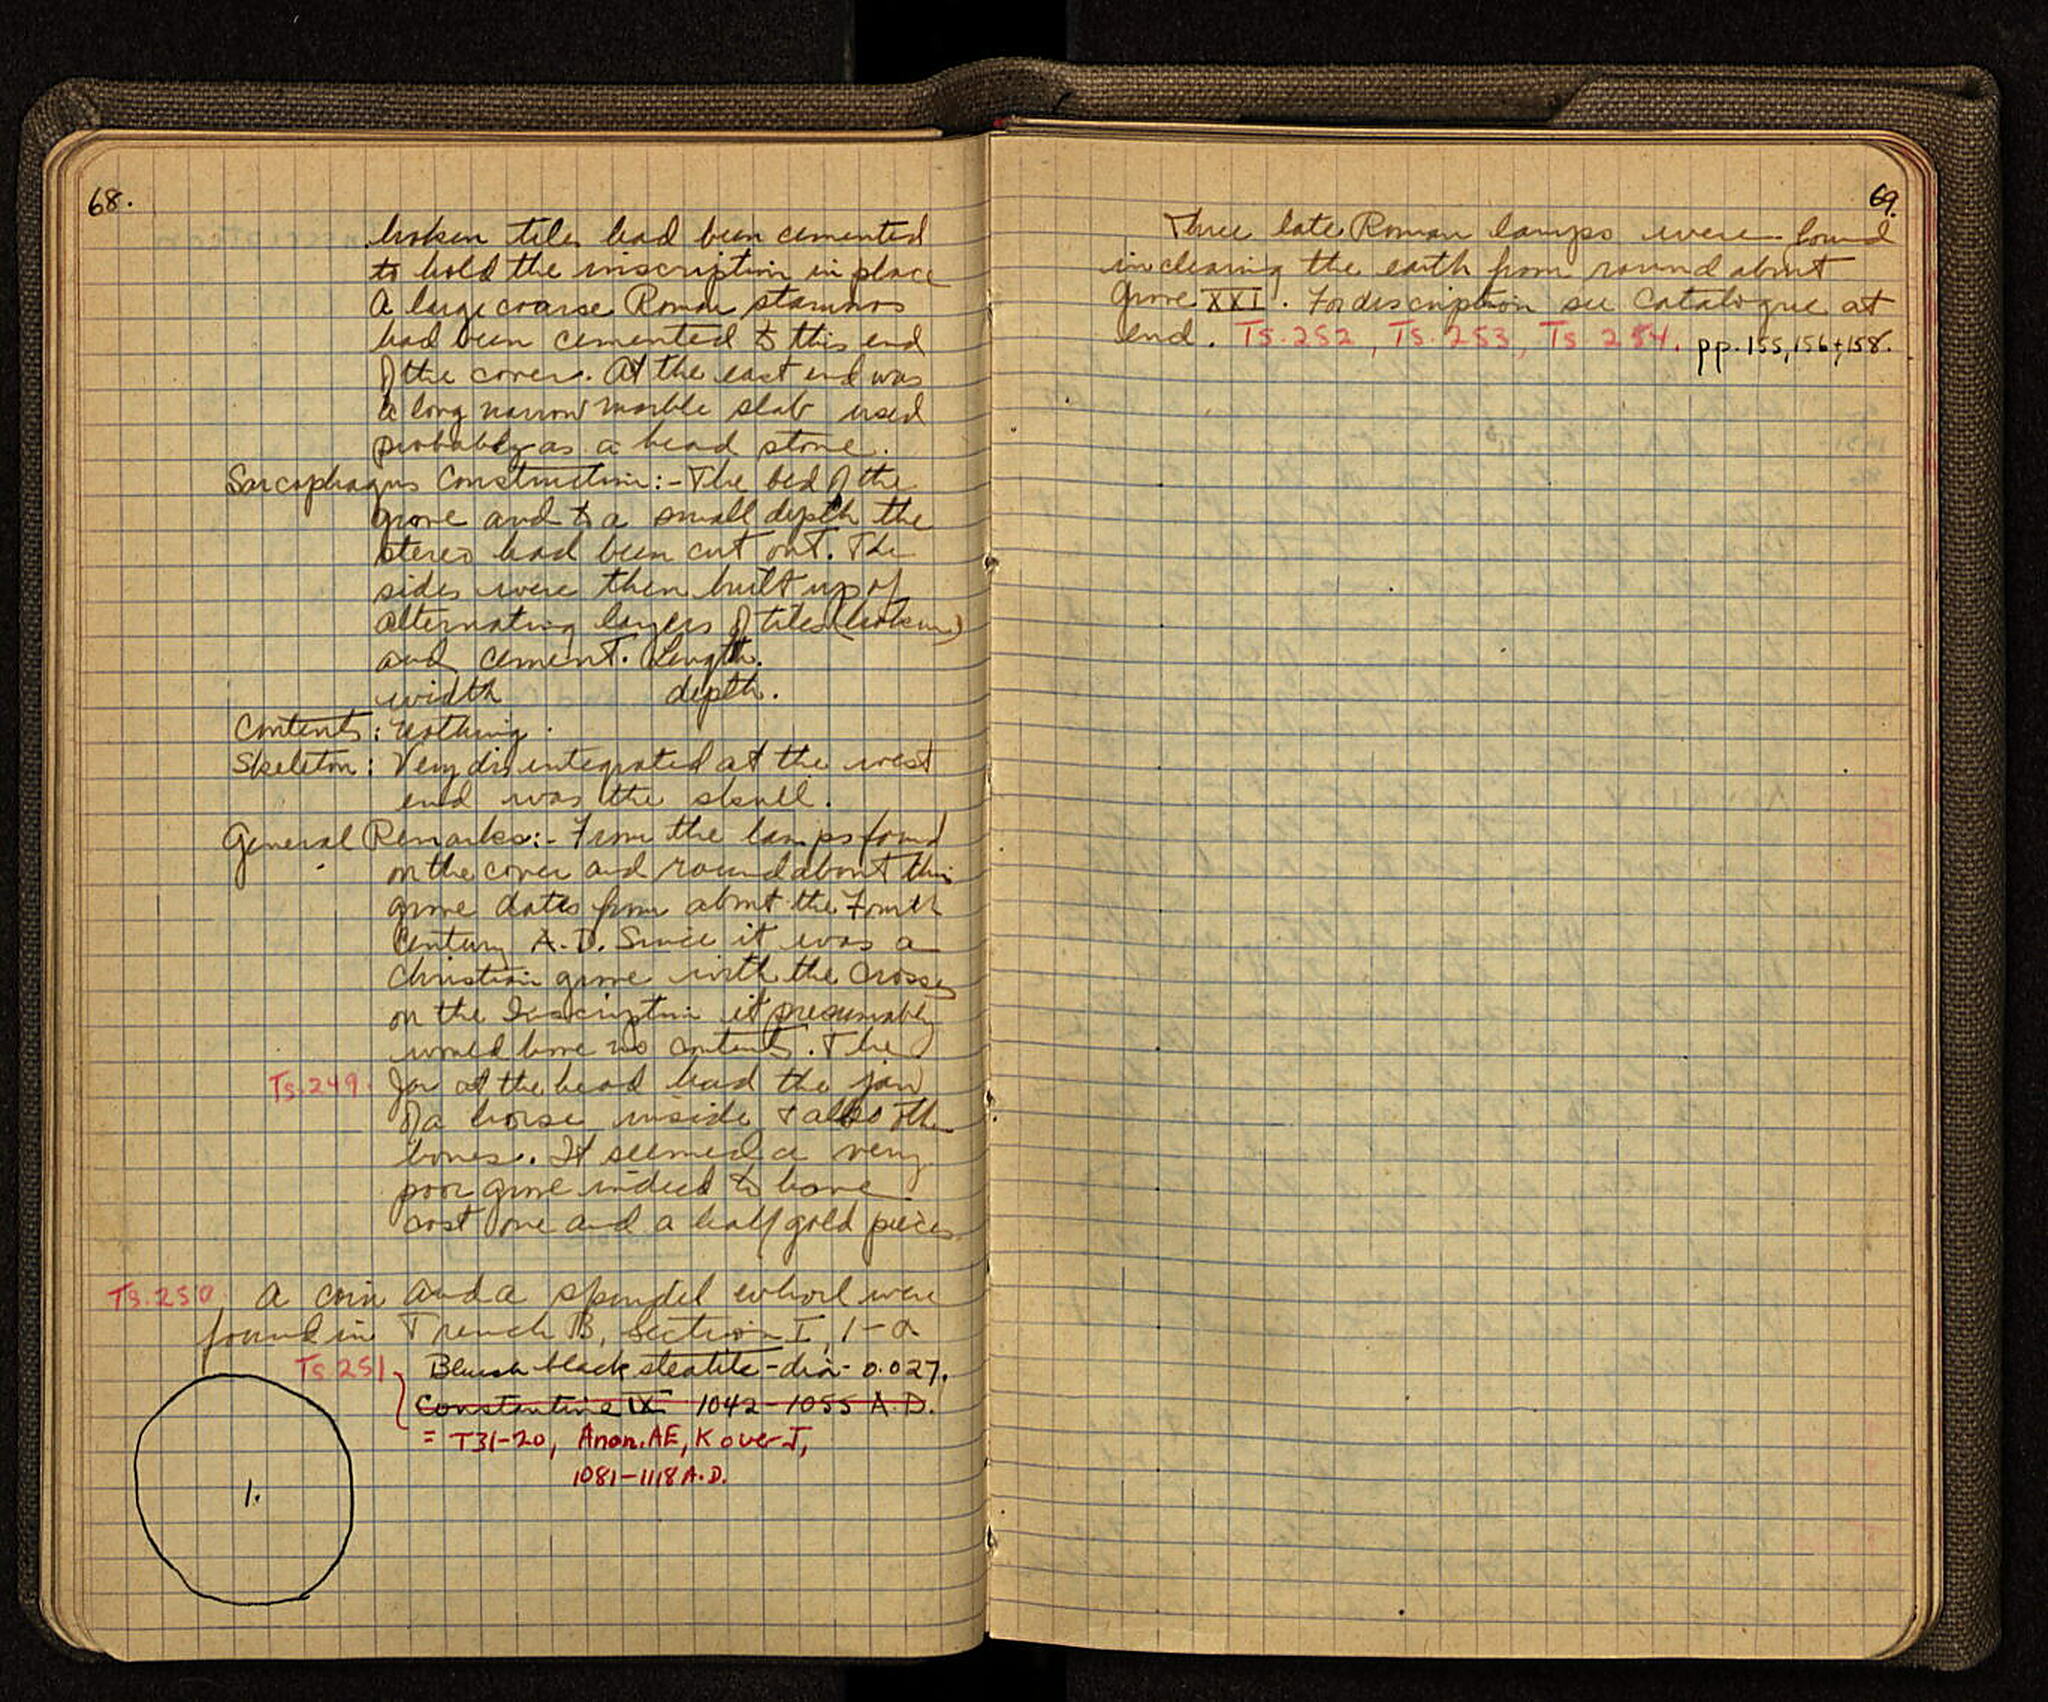 68.
broken tiles had been cemented
to hold the inscription in place
A large coarse Roman stamnos
had been cemented to this end
of the cover. At the east end was
a long narrow marble slab used
probably as a head stone.
Sarcophagus Construction:- The bed of the
grave and to a small depth the
stereo had been cut out. The
sides were then built up of
alternating layers of tiles (broken)
and cement. Length.
width depth.
Contents: Nothing.
Skeleton: Very disintegrated at the west
end was the skull.
General Remarks:- From the lamps found
on the cover and round about this
grave dates from about the Fourth
Century A.D. Since it was a
Christian grave with the crosses
on the Inscription it presumably
would have no contents. The
Ts.249. Jar at the head had the jaw
of a horse inside + also other
bones. It seemed a very
poor grave indeed to have
cost one and a half gold pieces
Ts.250, A coin and a spindel whorl were
found in Trench B, Section I, 1-a
Ts 251 Bluish black steatite - dia - 0.027.
Constantine IX 1042-1055 A.D.
= T31-20, Anon. AE, K over J,
1081-1118 A.D.
1.
69.
Three late Roman lamps were found
in clearing the earth from round about
Grave XXI. For description see Catalogue at
end. Ts.252, Ts.253, Ts 254. pp. 155, 156 + 158.